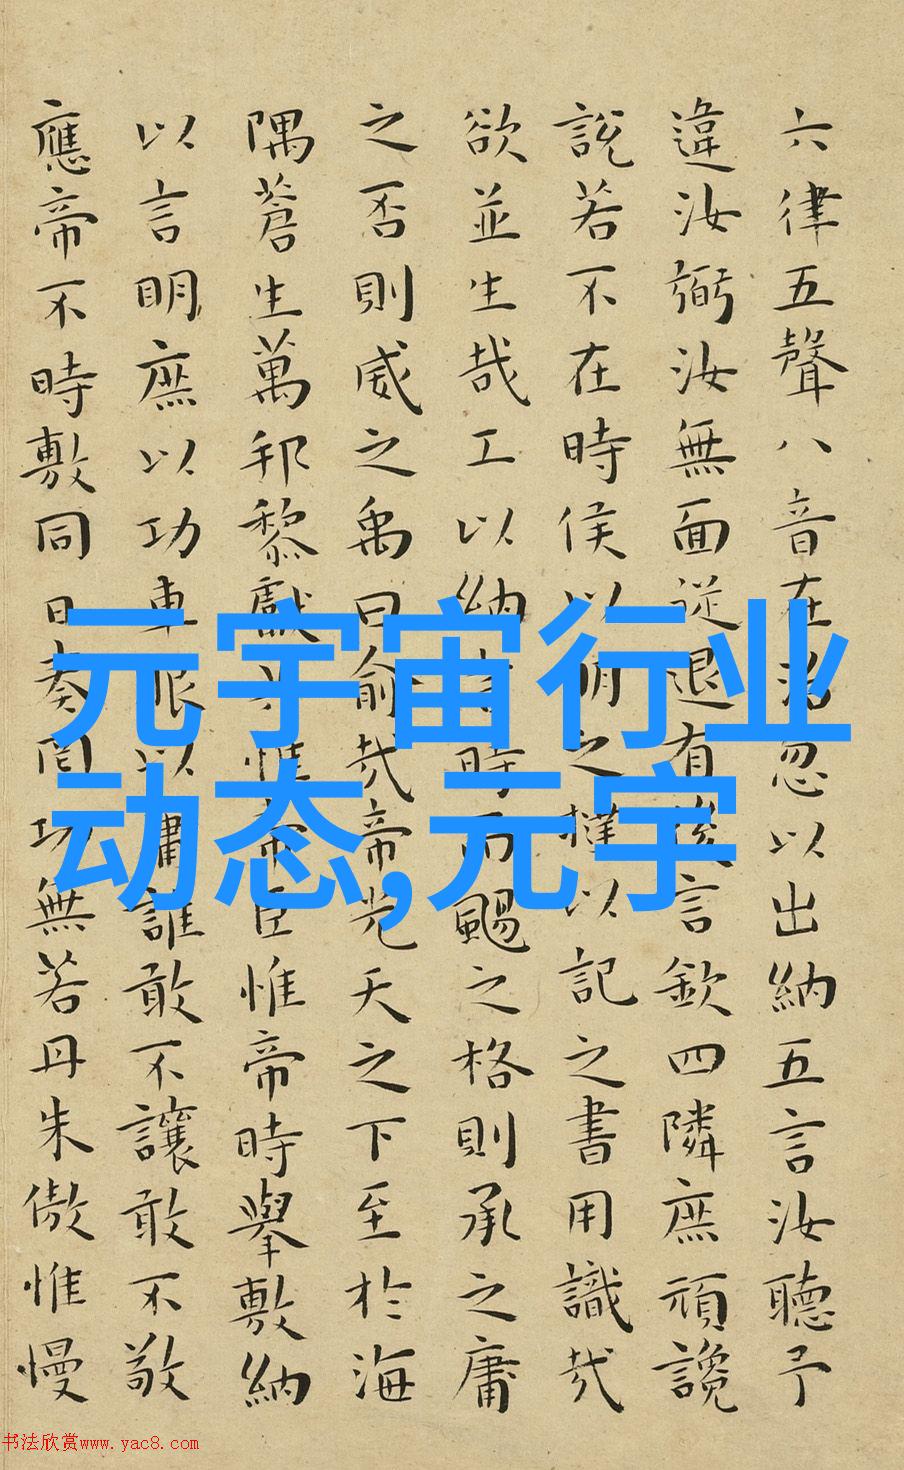 六律五聲八音在治忽以出納五言汝聽予
違汝弼汝無面從退有後言欽四隣庶頑讒
說若不在時侯以明之撻以記之書用識哉
欲並生哉工以納言時而颺之格則承之庸
之否則威之禹曰俞哉帝光天之下至於海
隅蒼生萬邦黎獻共惟帝臣惟帝時舉敷納
以言明庶以功車服以庸誰敢不讓敢不敬
應帝不時敷同日奏罔功無若丹朱傲惟慢
元宇宙行业
动态,元宇
书法欣赏www.yac8.com